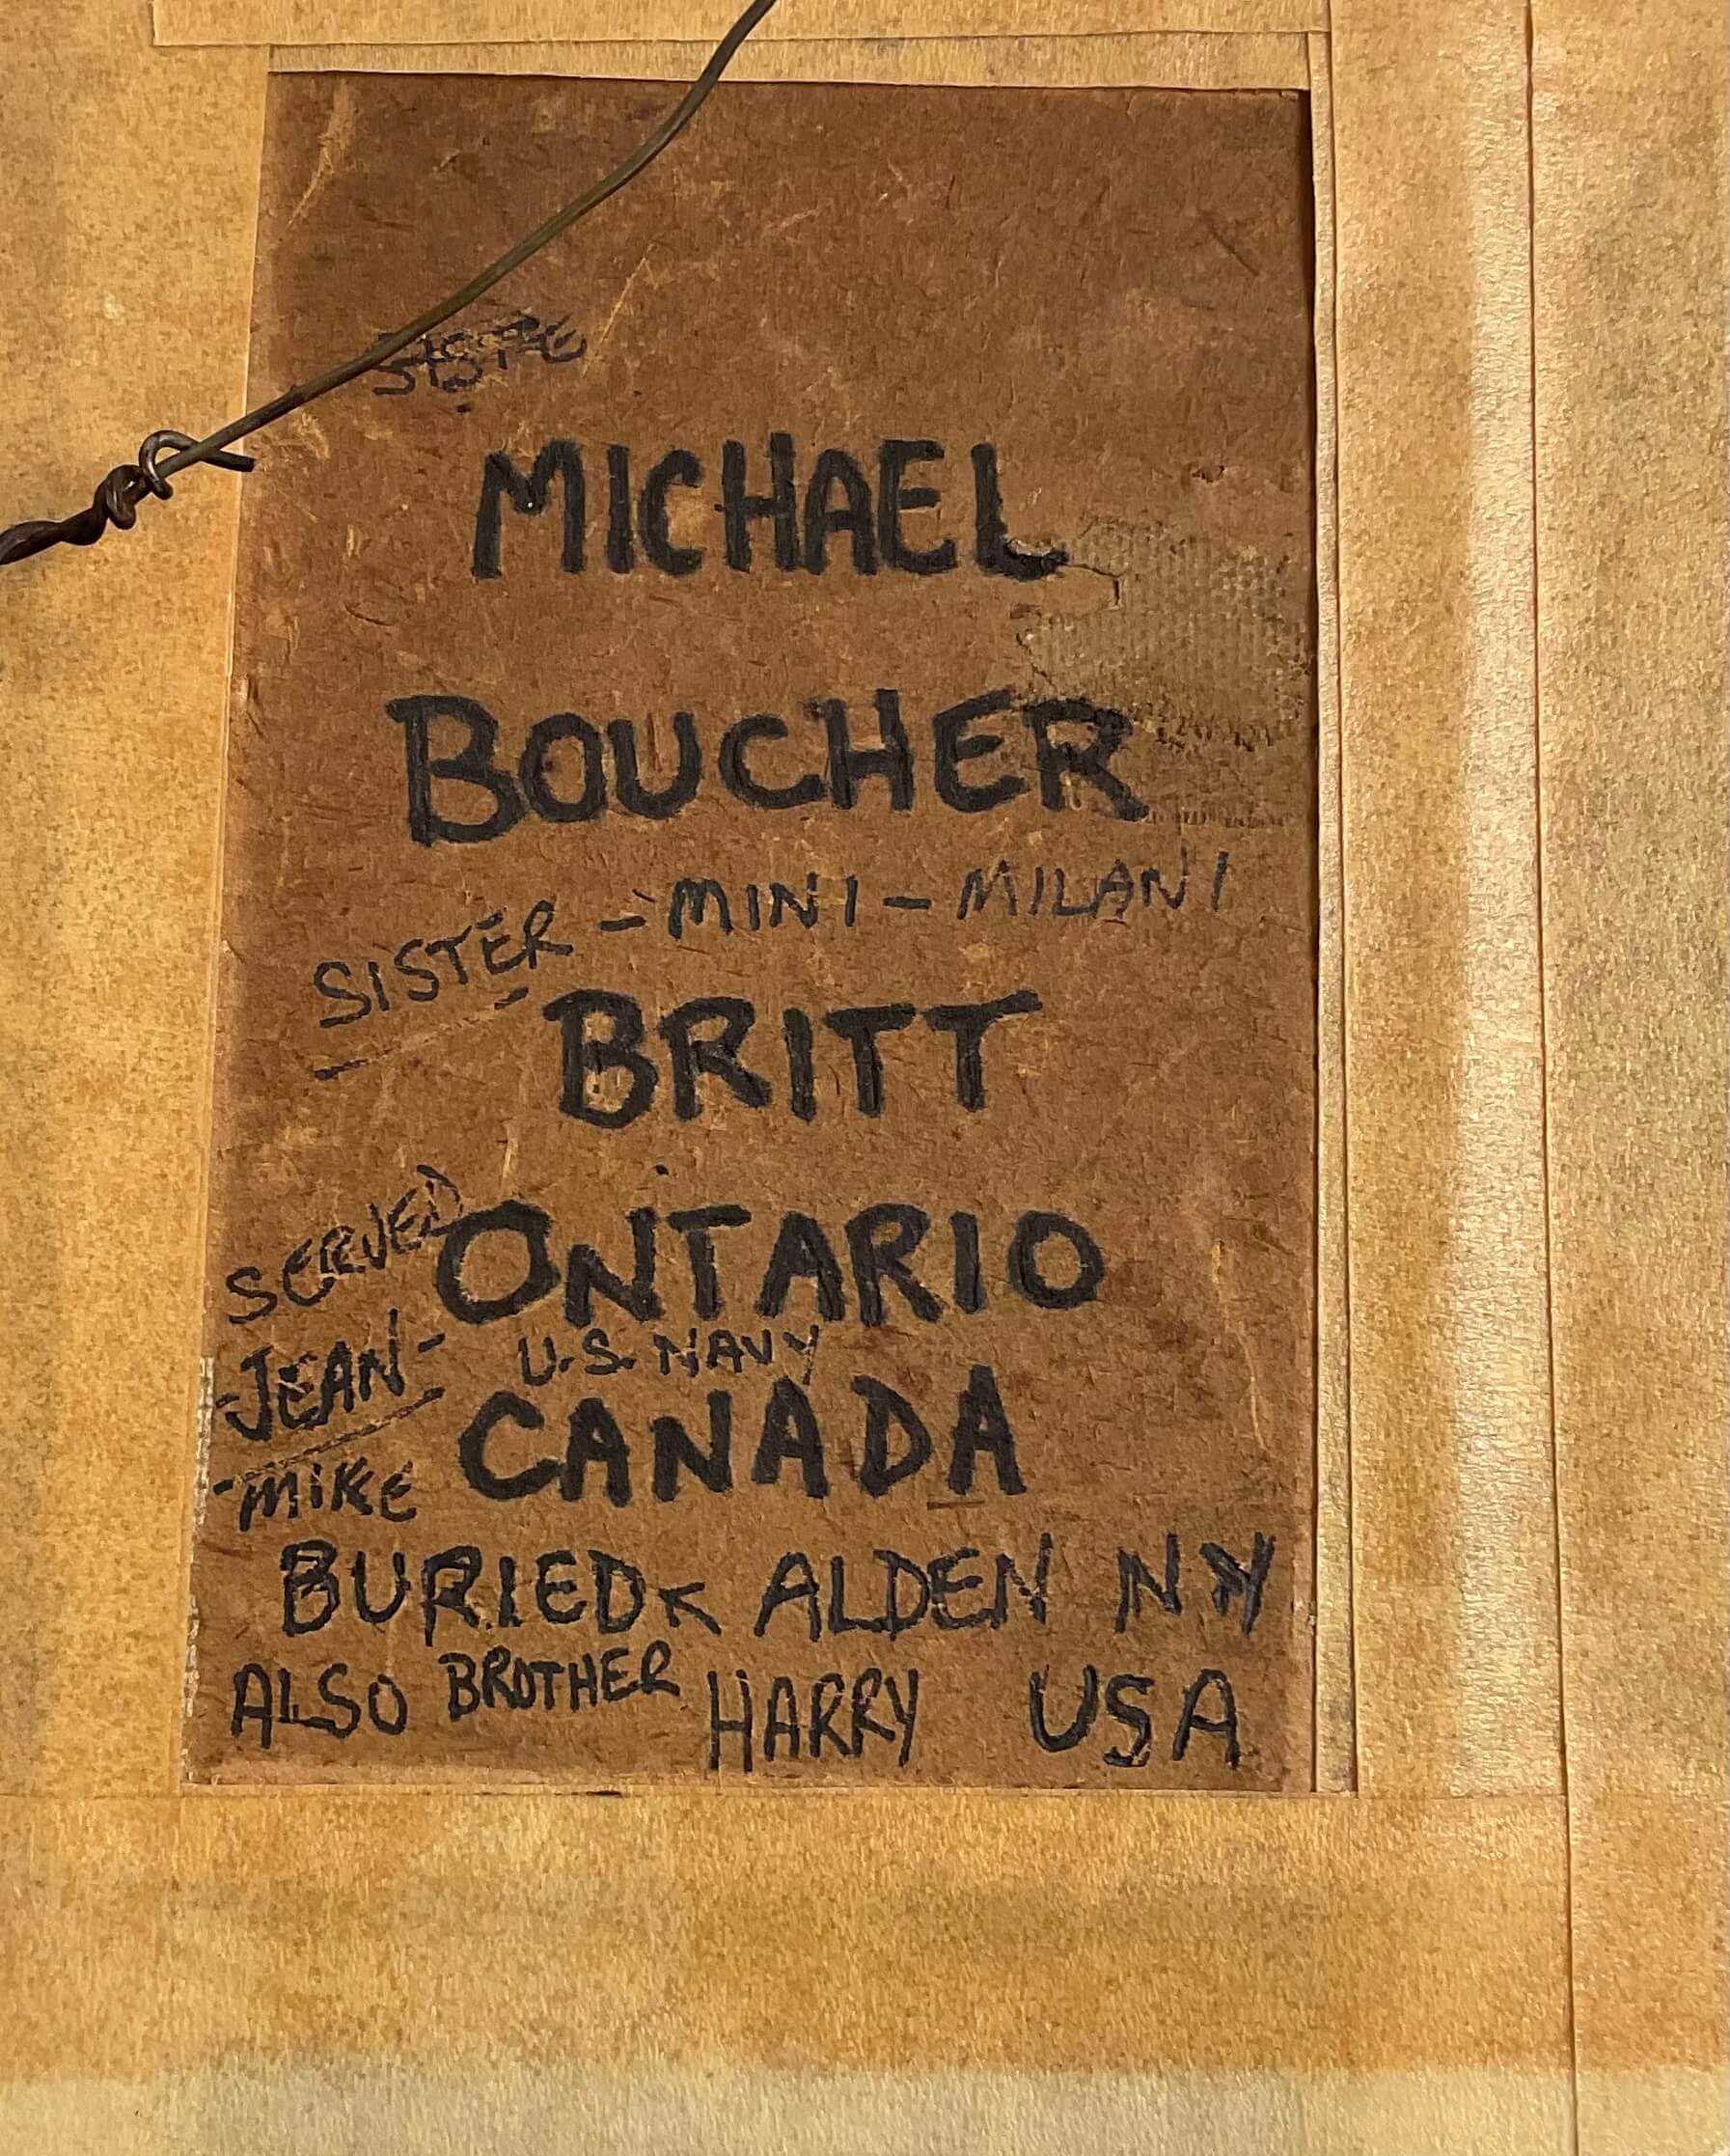 MICHAEL
BOUCHER
SISTER - MINI - MILANI
BRITT
SERVED
ONTARIO
JEAN - U.S. NAVY
- MIKE
CANADA
BURIED < ALDEN NY
ALSO BROTHER HARRY USA